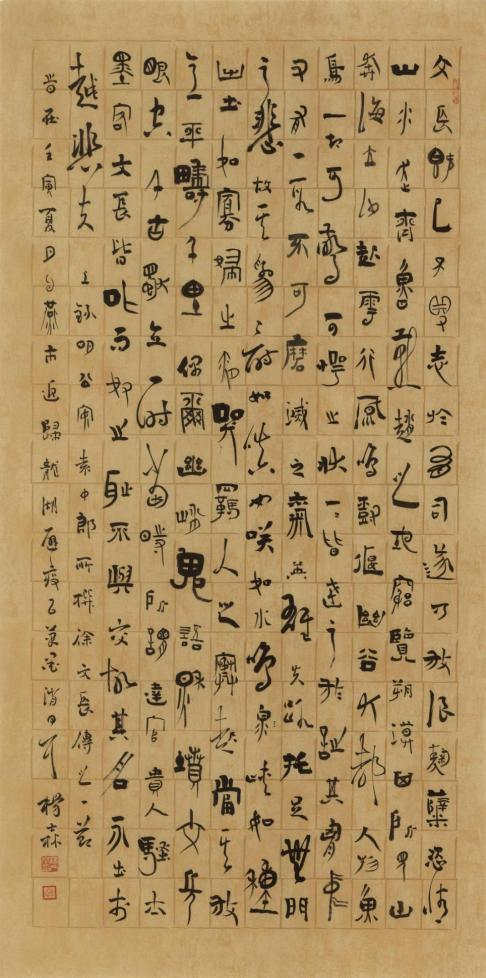 文長既已不得志於有司遂乃放浪麴糵恣情
山水走齊魯燕趙之地窮覽朔漠其所見山
奔海立沙起雲行風鳴樹偃幽谷大都人物魚
鳥一切可驚可愕之狀一一皆達之於詩其胸中
又有一段不可磨滅之氣英雄失路托足無門
之悲故其為詩如嗔如笑如水鳴峽如種
出土如寡婦之夜哭羈人之寒起當其放
意平疇千里偶爾幽峭鬼語秋墳文長
眼空千古獨立一時當時所謂達官貴人騷士
墨客文長皆叱而奴之恥不與交故其名不出於
越悲夫 上錄明公安袁中郎所撰徐文長傳之一節
時在壬寅夏日自燕市返歸龍湖避疫消日耳 楊森